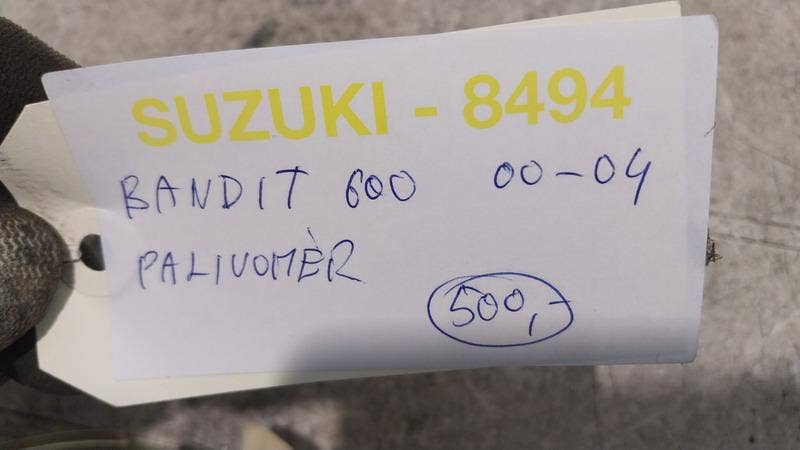 SUZUKI - 8494
BANDIT 600 00-04
PALIVOMĚR
500,-